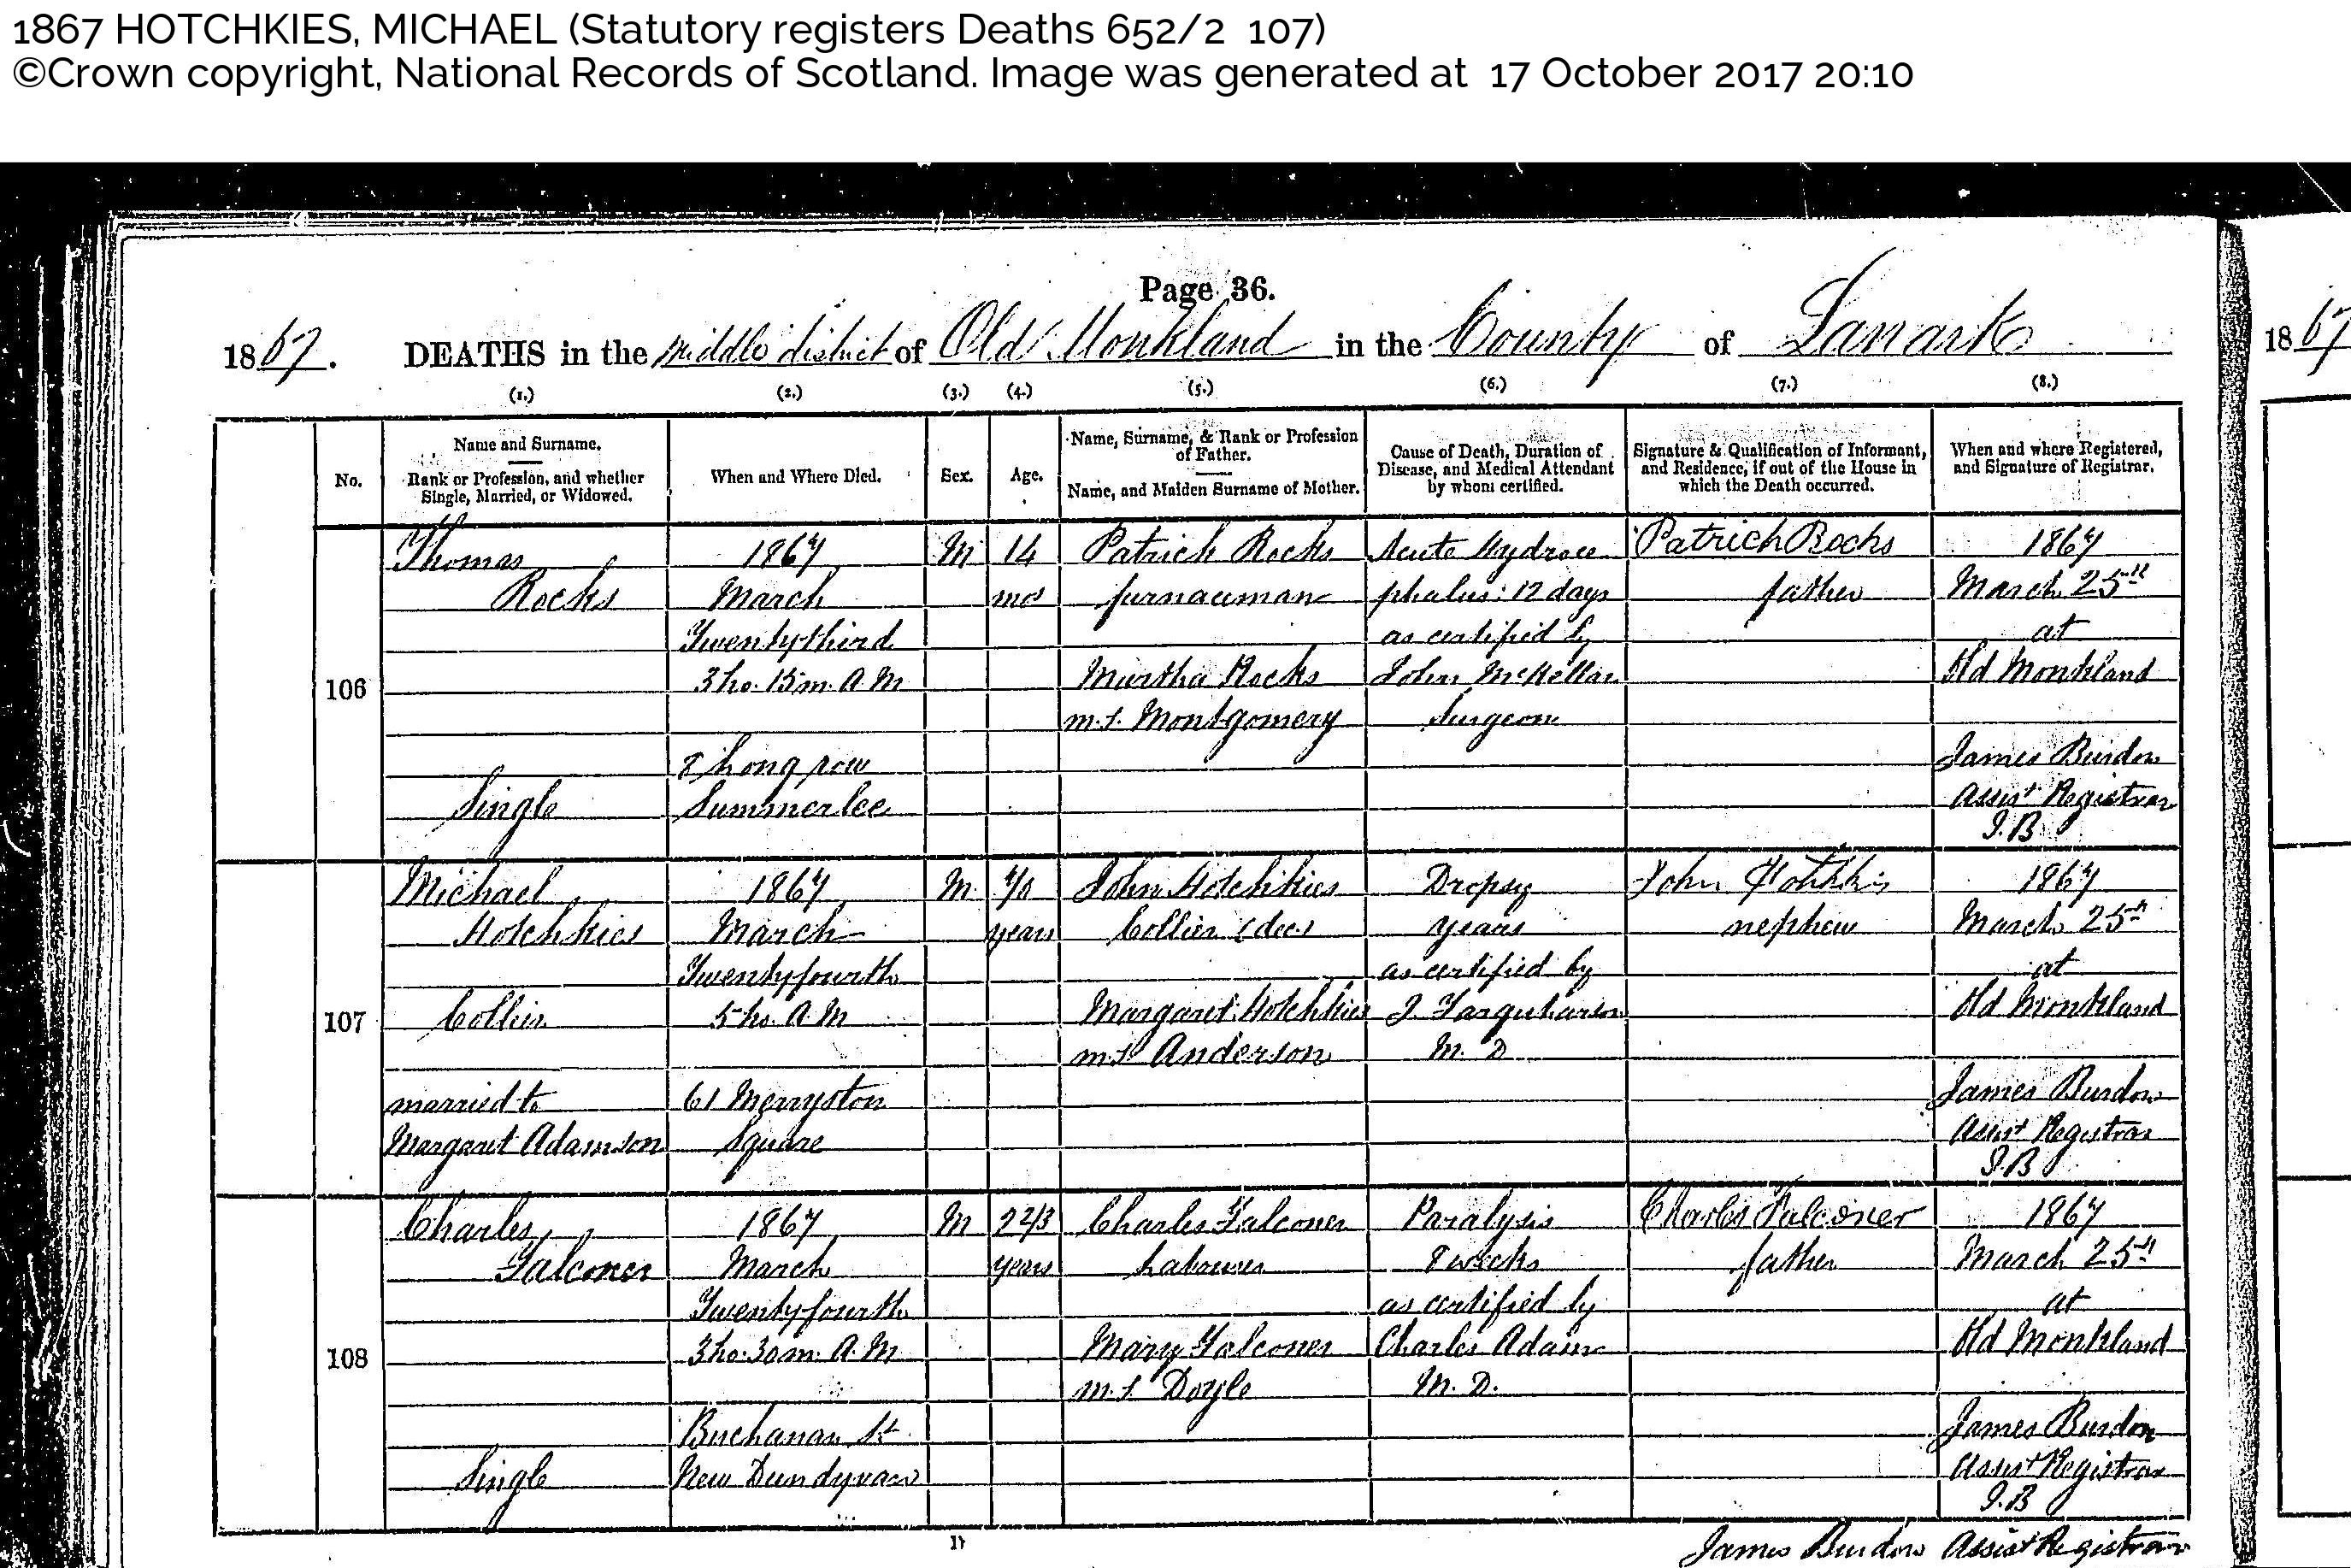 1867 HOTCHKIES, MICHAEL (Statutory registers Deaths 652/2 107)
©Crown copyright, National Records of Scotland. Image was generated at 17 October 2017 20:10
Page 36.
1867. DEATHS in the middle district of Old Monkland in the County of Lanark
1867
(1.) (2.) (3.) (4.) (5.) (6.) (7.) (8.)
No.
Name and Surname.
Rank or Profession, and whether
Single, Married, or Widowed.
When and Where Died.
Sex.
Age.
Name, Surname, & Rank or Profession
of Father.
Name, and Maiden Surname of Mother.
Cause of Death, Duration of
Disease, and Medical Attendant
by whom certified.
Signature & Qualification of Informant,
and Residence, if out of the House in
which the Death occurred.
When and where Registered,
and Signature of Registrar.
106
Thomas
Rocks
Single
1867
March
Twentythird
3 ho. 15 m. A M
8 Long row
Summerlee
M
14
mos
Patrick Rocks
furnaceman
Martha Rocks
m.s. Montgomery
Acute Hydroce
phalus: 12 days
as certified by
John McKellar
Surgeon
Patrick Rocks
father
1867
March 25th
at
Old Monkland
James Burdon
Assist Registrar
J.B
107
Michael
Hotchkies
Collier
married to
Margaret Adamson
1867
March
Twentyfourth
5 ho. A M
61 Merryston
Square
M.
70
years
John Hotchkies
Collier (dec.)
Margaret Hotchkies
m.s. Anderson
Dropsy
years
as certified by
J. Farquharson
M. D
John Hotchkis
nephew
1867
March 25th
at
Old Monkland
James Burdon
Assist Registrar
J.B
108
Charles
Falconer
Single
1867
March
Twentyfourth
3 ho. 30 m. A. M
Buchanan St
New Dundyvan
M
2 2/3
years
Charles Falconer
Labourer
Mary Falconer
m.s. Doyle
Paralysis
8 weeks
as certified by
Charles Adam
M. D.
Charles Falconer
father
1867
March 25th
at
Old Monkland
James Burdon
Assist Registrar
J.B
James Burdon Assist Registrar